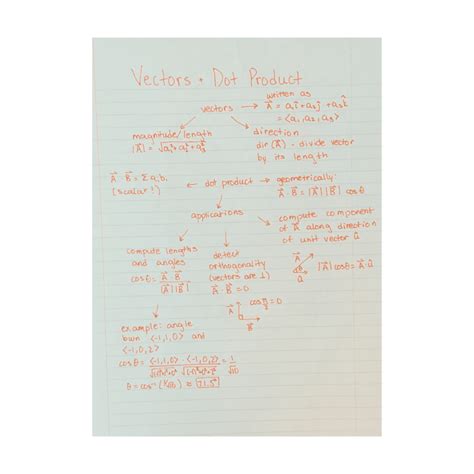 Vectors + Dot Product
vectors → written as
A⃗ = a₁î + a₂ĵ + a₃k̂
= ⟨a₁, a₂, a₃⟩
magnitude/length
|A⃗| = √a₁² + a₂² + a₃²
direction
dir(A⃗) - divide vector
by its length
A⃗ · B⃗ = Σ aᵢbᵢ
(scalar!)
dot product
geometrically:
A⃗ · B⃗ = |A⃗||B⃗| cosθ
applications
compute lengths
and angles
cosθ = A⃗ · B⃗ / |A⃗||B⃗|
detect
orthogonality
(vectors are ⊥)
A⃗ · B⃗ = 0
A⃗
B⃗
cos π/2 = 0
compute component
of A⃗ along direction
of unit vector û
|A⃗| cosθ = A⃗ · û
example: angle
btwn ⟨-1,1,0⟩ and
⟨-1,0,2⟩
θ = cos⁻¹ (1/√10) ≈ 71.5°